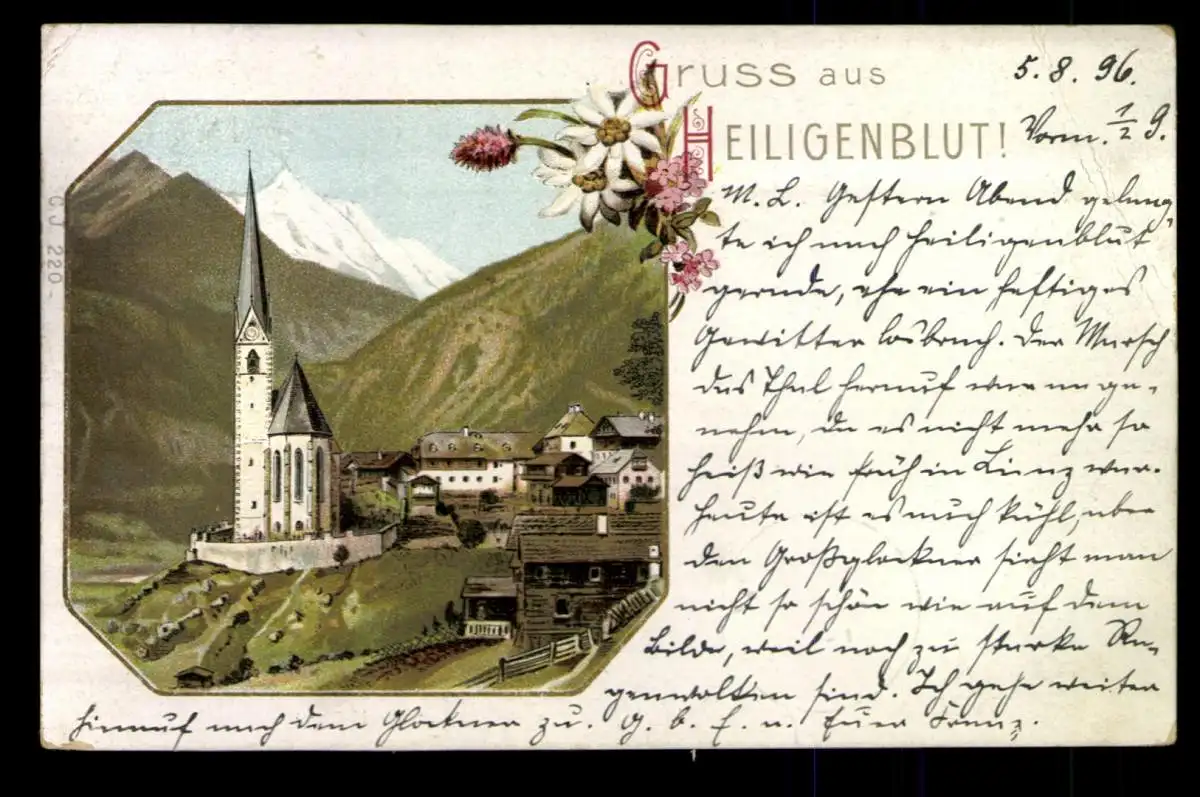 Gruss aus
HEILIGENBLUT!
5. 8. 96.
Vorm. ½ 9.
M. L. Gestern Abend gelang-
te ich nach Heiligenblut
gerade, ehe ein heftiges
Gewitter losbrach. Der Marsch
das Thal herauf war ange-
nehm, da es nicht mehr so
heiß wie früh in Lienz war.
Heute ist es auch kühl, aber
den Großglockner sieht man
nicht so schön wie auf dem
Bilde, weil noch zu starke Re-
genwolken sind. Ich gehe weiter
hinauf nach dem Glockner zu. G. b. E. u. Euer Franz.
CJ 220.